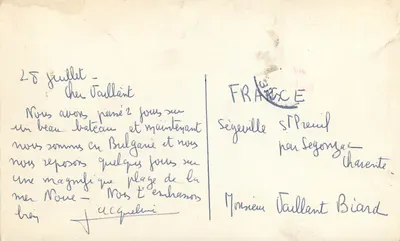 28 juillet -
cher Vaillant
Nous avons passé 2 jours sur
un beau bateau et maintenant
nous sommes en Bulgarie et nous
nous reposons quelques jours sur
une magnifique plage de la
mer Noire - Nous t'embrassons
bien Jacqueline
FRANCE
Ségeville St Preuil
par Segonzac
Charente
Monsieur Vaillant Biard